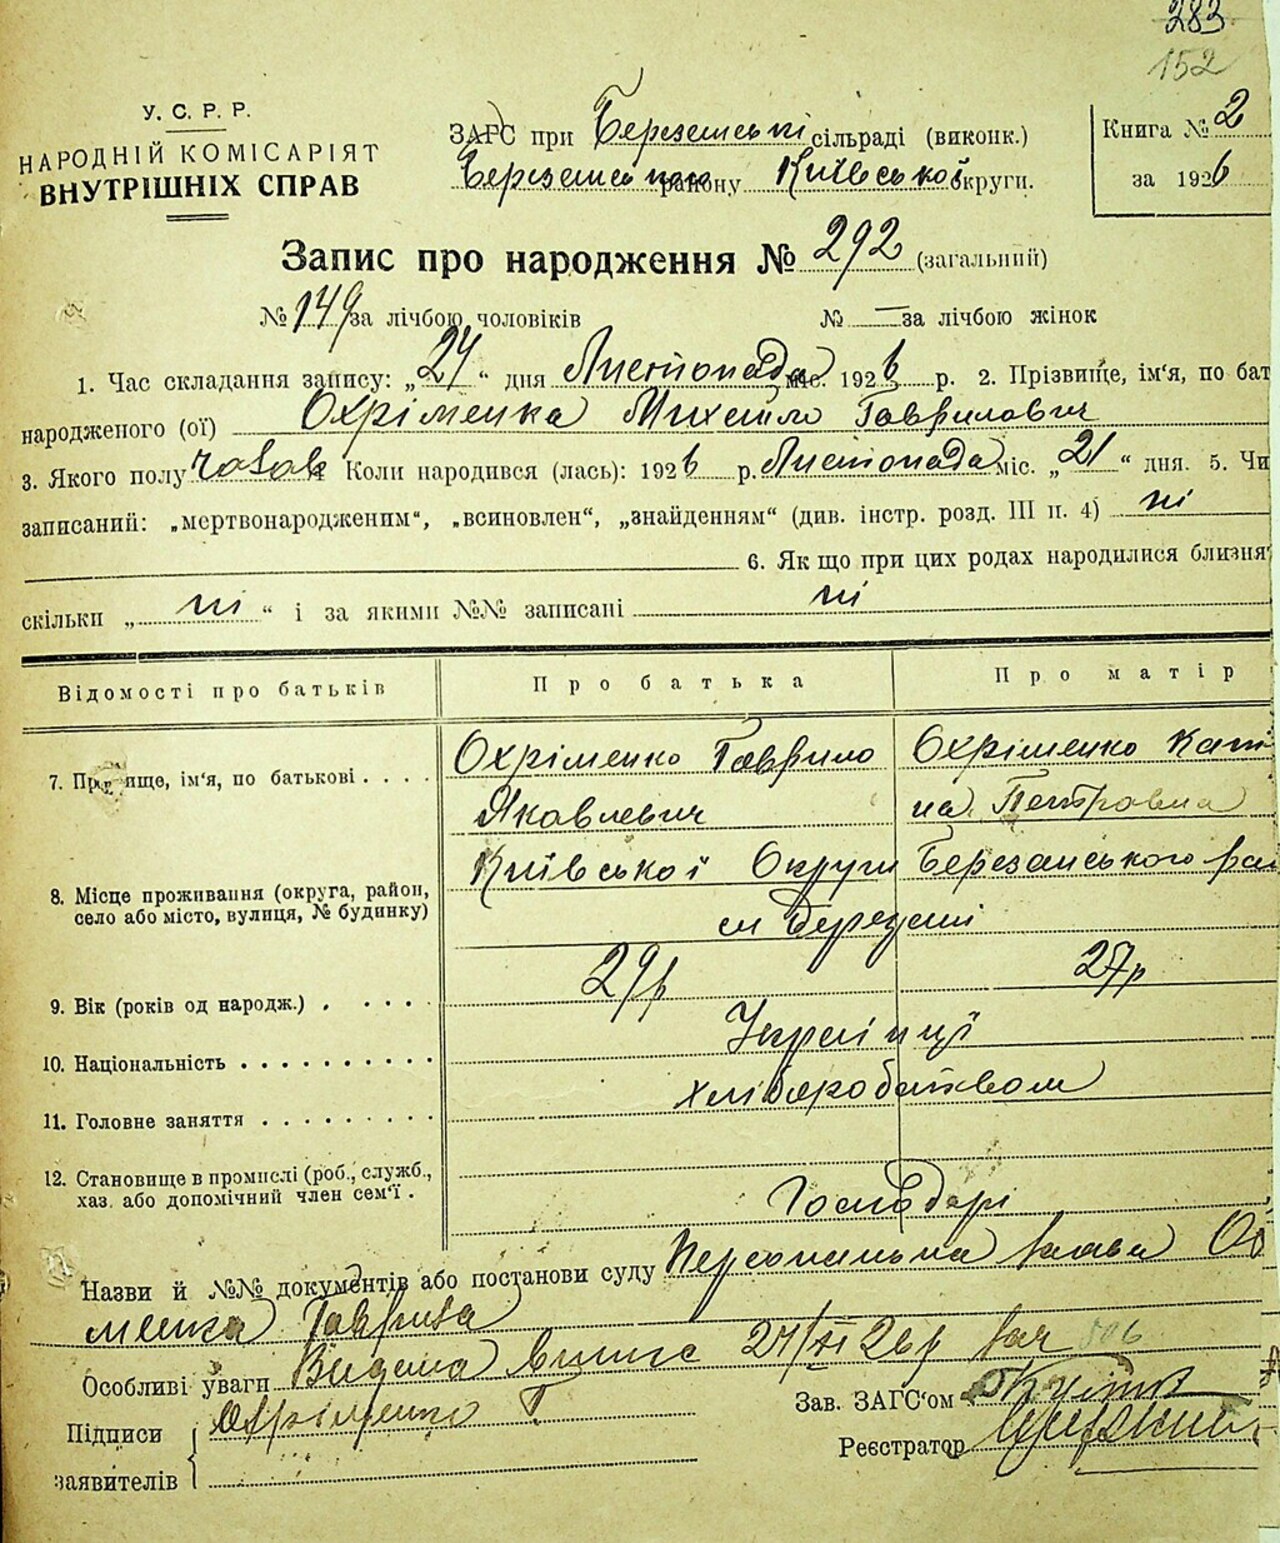 283
152
У. С. Р. Р.
НАРОДНІЙ КОМІСАРІЯТ
ВНУТРІШНІХ СПРАВ
ЗАГС при Березанські сільраді (виконк.)
району Київської округи.
Книга № 2
за 1926
Запис про народження № 292 (загальний)
№ 149 за лічбою чоловіків № — за лічбою жінок
1. Час складання запису: „24“ дня Листопада міс. 1926 р. 2. Прізвище, ім'я, по бат
народженого (ої) Охріменка Михайло Гаврилович
3. Якого полу Коли народився (лась): 1926 р. Листопада міс. „21“ дня. 5. Чи
записаний: „мертвонародженим“, „всиновлен“, „знайденням“ (див. інстр. розд. III п. 4) ні
6. Як що при цих родах народилися близня
скільки „ ні “ і за якими №№ записані ні
Відомості про батьків Про батька Про матір
7. Пр ище, ім'я, по батькові . . . . Охріменко Гаврило Яковлевич
Охріменко Кат на Петровна
8. Місце проживання (округа, район, село або місто, вулиця, № будинку) Київської Округи Березанського рай
м Березані
9. Вік (років од народж.) . . . . . 29р 27р
10. Національність . . . . . . . . . . Українці
11. Головне заняття . . . . . . . . хліборобством
12. Становище в промислі (роб., служб., хаз. або допомічний член сем'ї . Господарі
Назви й №№ документів або постанови суду Персональна заява Ох
менка Гаврила
Особливі уваги Видана 24/XI 26р
Підписи заявителів Охріменко Г
Зав. ЗАГС'ом
Реєстратор